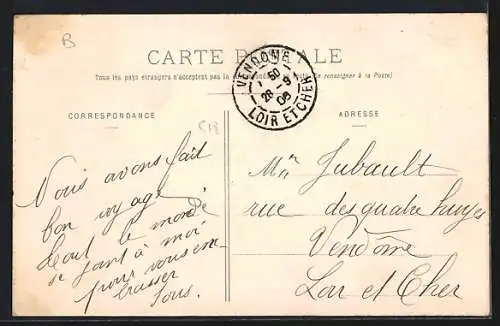 B
CARTE POSTALE
Tous les pays étrangers n'acceptent pas la (Se renseigner à la Poste)
VENDOME
50
26 - 9
06
LOIR ET CHER
CORRESPONDANCE
ADRESSE
518
Nous avons fait
bon voyage
tout le monde
se joint à moi
pour vous em-
brasser
tous.
Mr Jubault
rue des quatre huyes
Vendôme
Loir et Cher